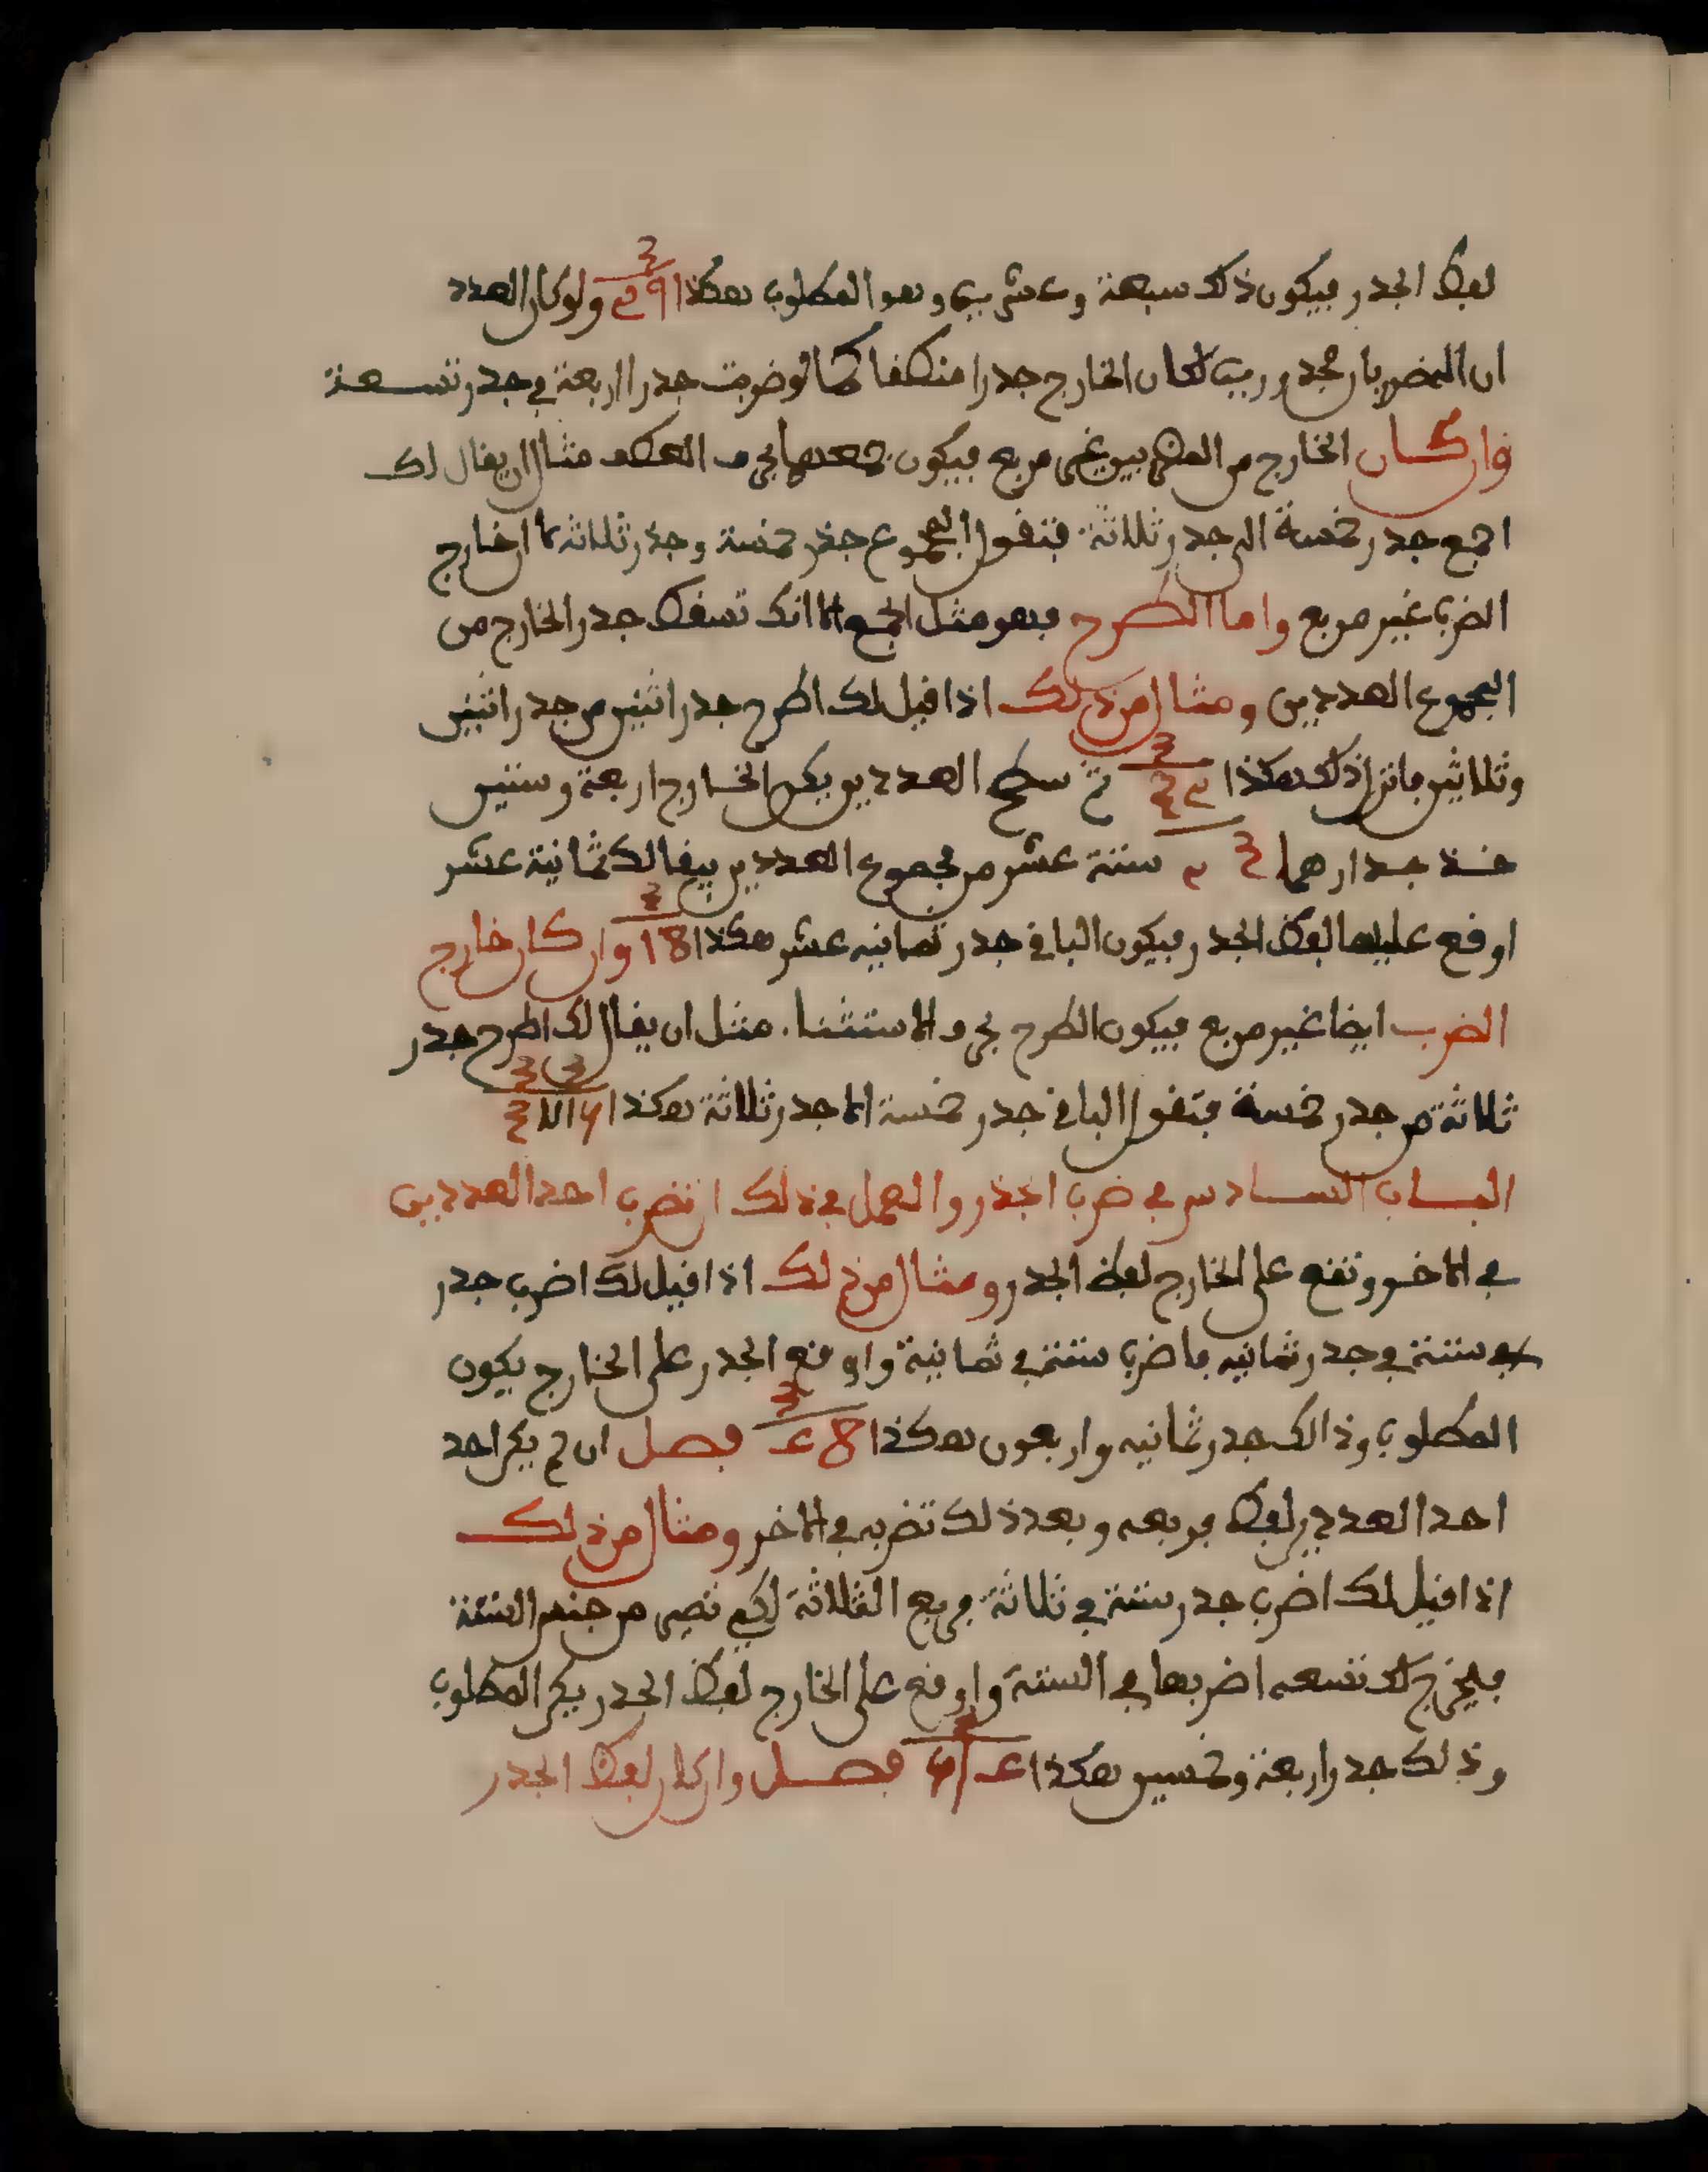 لفظ الجدر فيكون ذلك سبعة وعشرين وهو المطلوب هكذا ولو كان العدد
ان المضربان مجدورين لكان الخارج جدرا منطفا كما لو ضربت جدر اربعة في جدر تسعة
وان كان الخارج من غير مربع فيكون جمعهما بحرف العطف مثال ان يقال لك
اجمع جدر خمسة الى جدر ثلاثة فتقول المجموع جذر خمسة وجذر ثلاثة لان خارج
الضرب غير مربع واما الطرح فهو مثل الجمع الا انك تسقط جدر الخارج من
المجموع العددين ومثال من ذلك اذا قيل لك اطرح جدر اثنين من جدر اثنين
وثلاثين فانزل ذلك هكذا ثم سطح العددين يكن الخارج اربعة وستين
خذ جدارهما ستة عشر من مجموع العددين يبقا لك ثمانية عشر
اوقع عليها لفظ الجدر فيكون الباقي جدر ثمانيه عشر هكذا 18 وان كان خارج
الضرب ايضا غير مربع فيكون الطرح بحرف الاستثنا. مثل ان يقال لك اطرح جدر
ثلاثة من جدر خمسة فتقول الباقي جدر خمسة الا جدر ثلاثة هكذا
الباب السادس في ضرب الجذر والعمل في ذلك ان تضرب احد العددين
في الاخر وتقع على الخارج لفظ الجدر ومثال من ذلك اذا قيل لك اضرب جدر
ستة في جدر ثمانيه فاضرب ستة في ثمانية واوقع الجدر على الخارج يكون
المطلوب وذالك جدر ثمانيه واربعون هكذا فصل ان لم يكن احد
احد العددين لفظ فربعه وبعد ذلك تضربه في الاخر ومثال من ذلك
اذا قيل لك اضرب جدر ستة في ثلاثة فربع الثلاثة لكي تصير من جنس الستة
فيخرج لك تسعه اضربها في الستة واوقع على الخارج لفظ الجدر يكن المطلوب
وذلك جدر اربعة وخمسين هكذا فصل وان كان لفظ الجدر